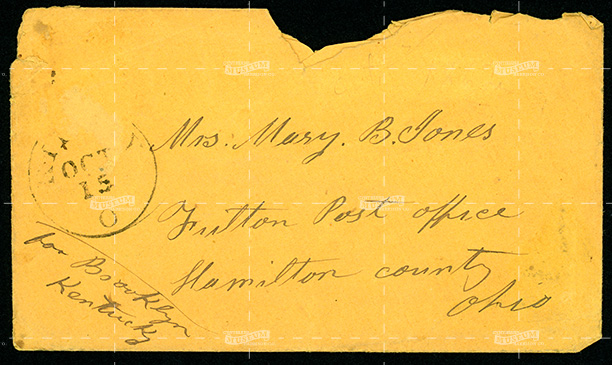 Mrs. Mary. B. Jones
Fulton Post office
Hamilton county
Ohio
for Brooklyn
Kentucky
OCT
19
O
MUSEUM